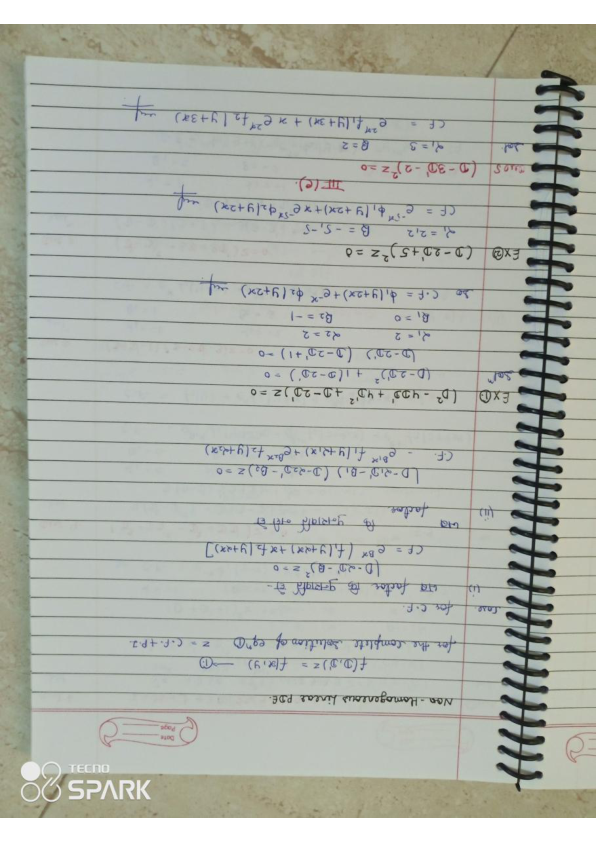 Date
Page
Non-Homogeneous Linear PDE.
f(D,D')z = f(x,y) —①
for the complete solution of eqn ① z = C.F. + P.I.
case for C.F.
(i) जब factor कि पुनरावृत्ति हो-
(D-αD'-B)² z = 0
CF = e^Bx (f₁(y+αx) + x f₂(y+αx)]
(ii) जब कि पुनरावृत्ति नहीं हो factor
(D-α₁D'-B₁) (D-α₂D'-B₂) z = 0
CF. - e^B₁x f₁(y+α₁x) + e^B₂x f₂(y+α₂x)
Ex① (D² - 4DD' + 4D'² + D - 2D')z = 0
Solⁿ (D-2D')² + 1(D-2D') = 0
(D-2D') (D-2D'+1) = 0
α₁ = 2 α₂ = 2
B₁ = 0 B₂ = -1
So C.F = ϕ₁(y+2x) + e^-x ϕ₂(y+2x)
Ex② (D-2D'+5)² z = 0
α₁ = 2,2 B = -5,-5
CF = e^-5x ϕ₁(y+2x) + x e^-5x ϕ₂(y+2x)
III (c).
(D-3D'-2)² z = 0
Sol α₁ = 3 B = 2
CF = e^2x f₁(y+3x) + x e^2x f₂(y+3x)
TECNO
SPARK